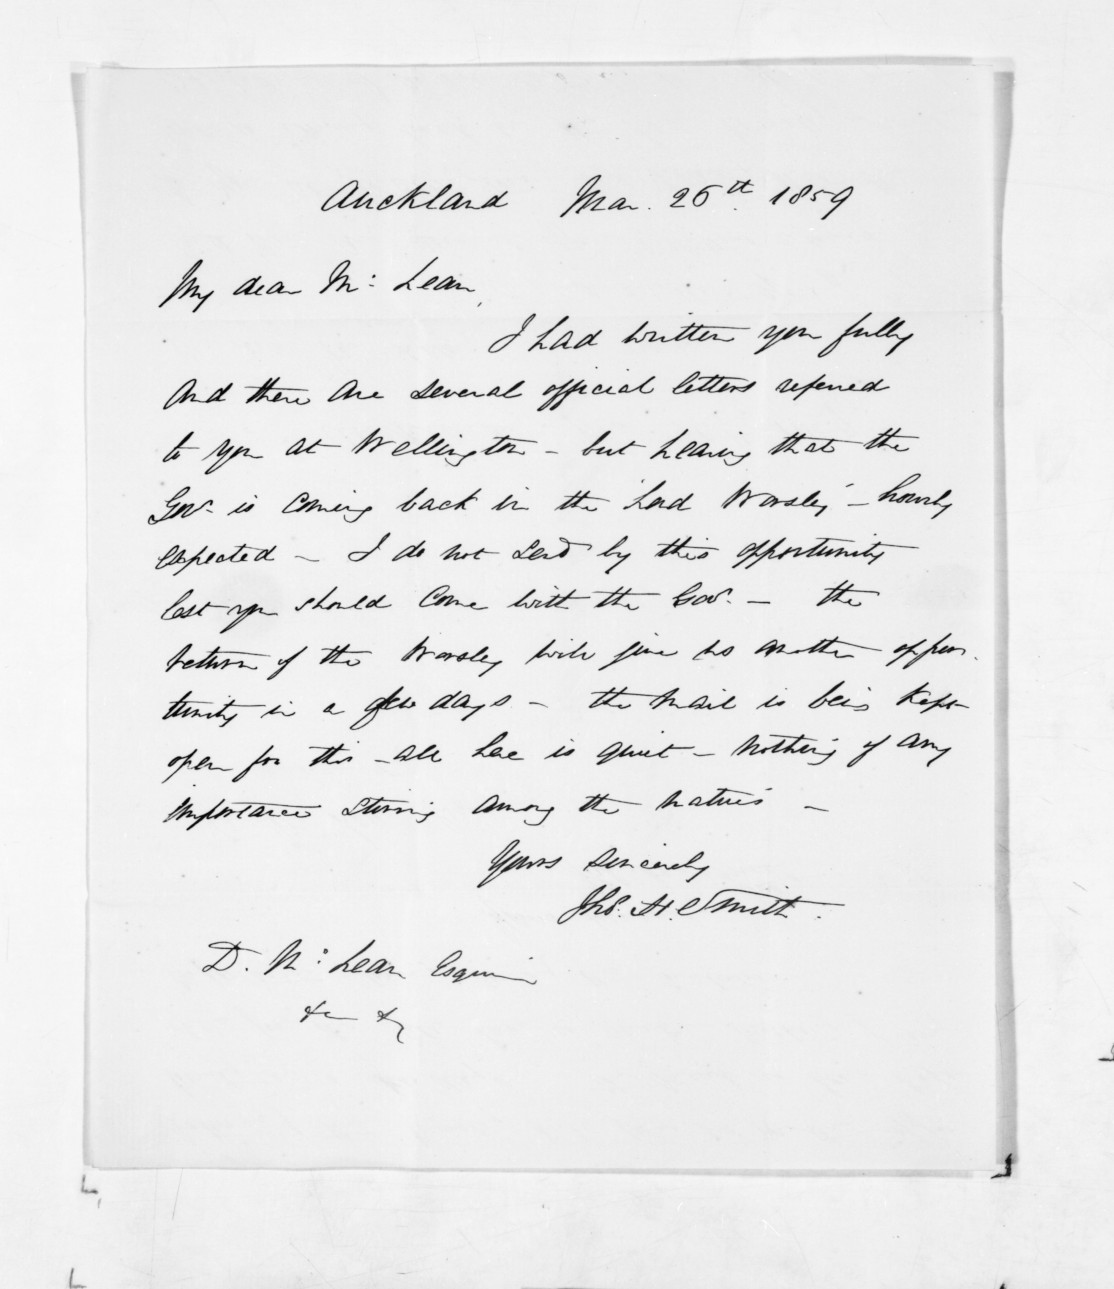 Auckland Mar. 26th 1859
My dear Mc: Lean,
I had written you fully
and there are several official letters referred
to you at Wellington - but hearing that the
Govr. is coming back in the Lord Worsley - hourly
expected - I do not send by this opportunity
lest you should come with the Govr. - the
return of the Worsley will give us another oppor-
tunity in a few days - the mail is being kept
open for this - all here is quiet - nothing of any
importance stirring among the natives -
Yours sincerely
Jhs. H. Smith.
D. Mc: Lean Esquire
&c &c